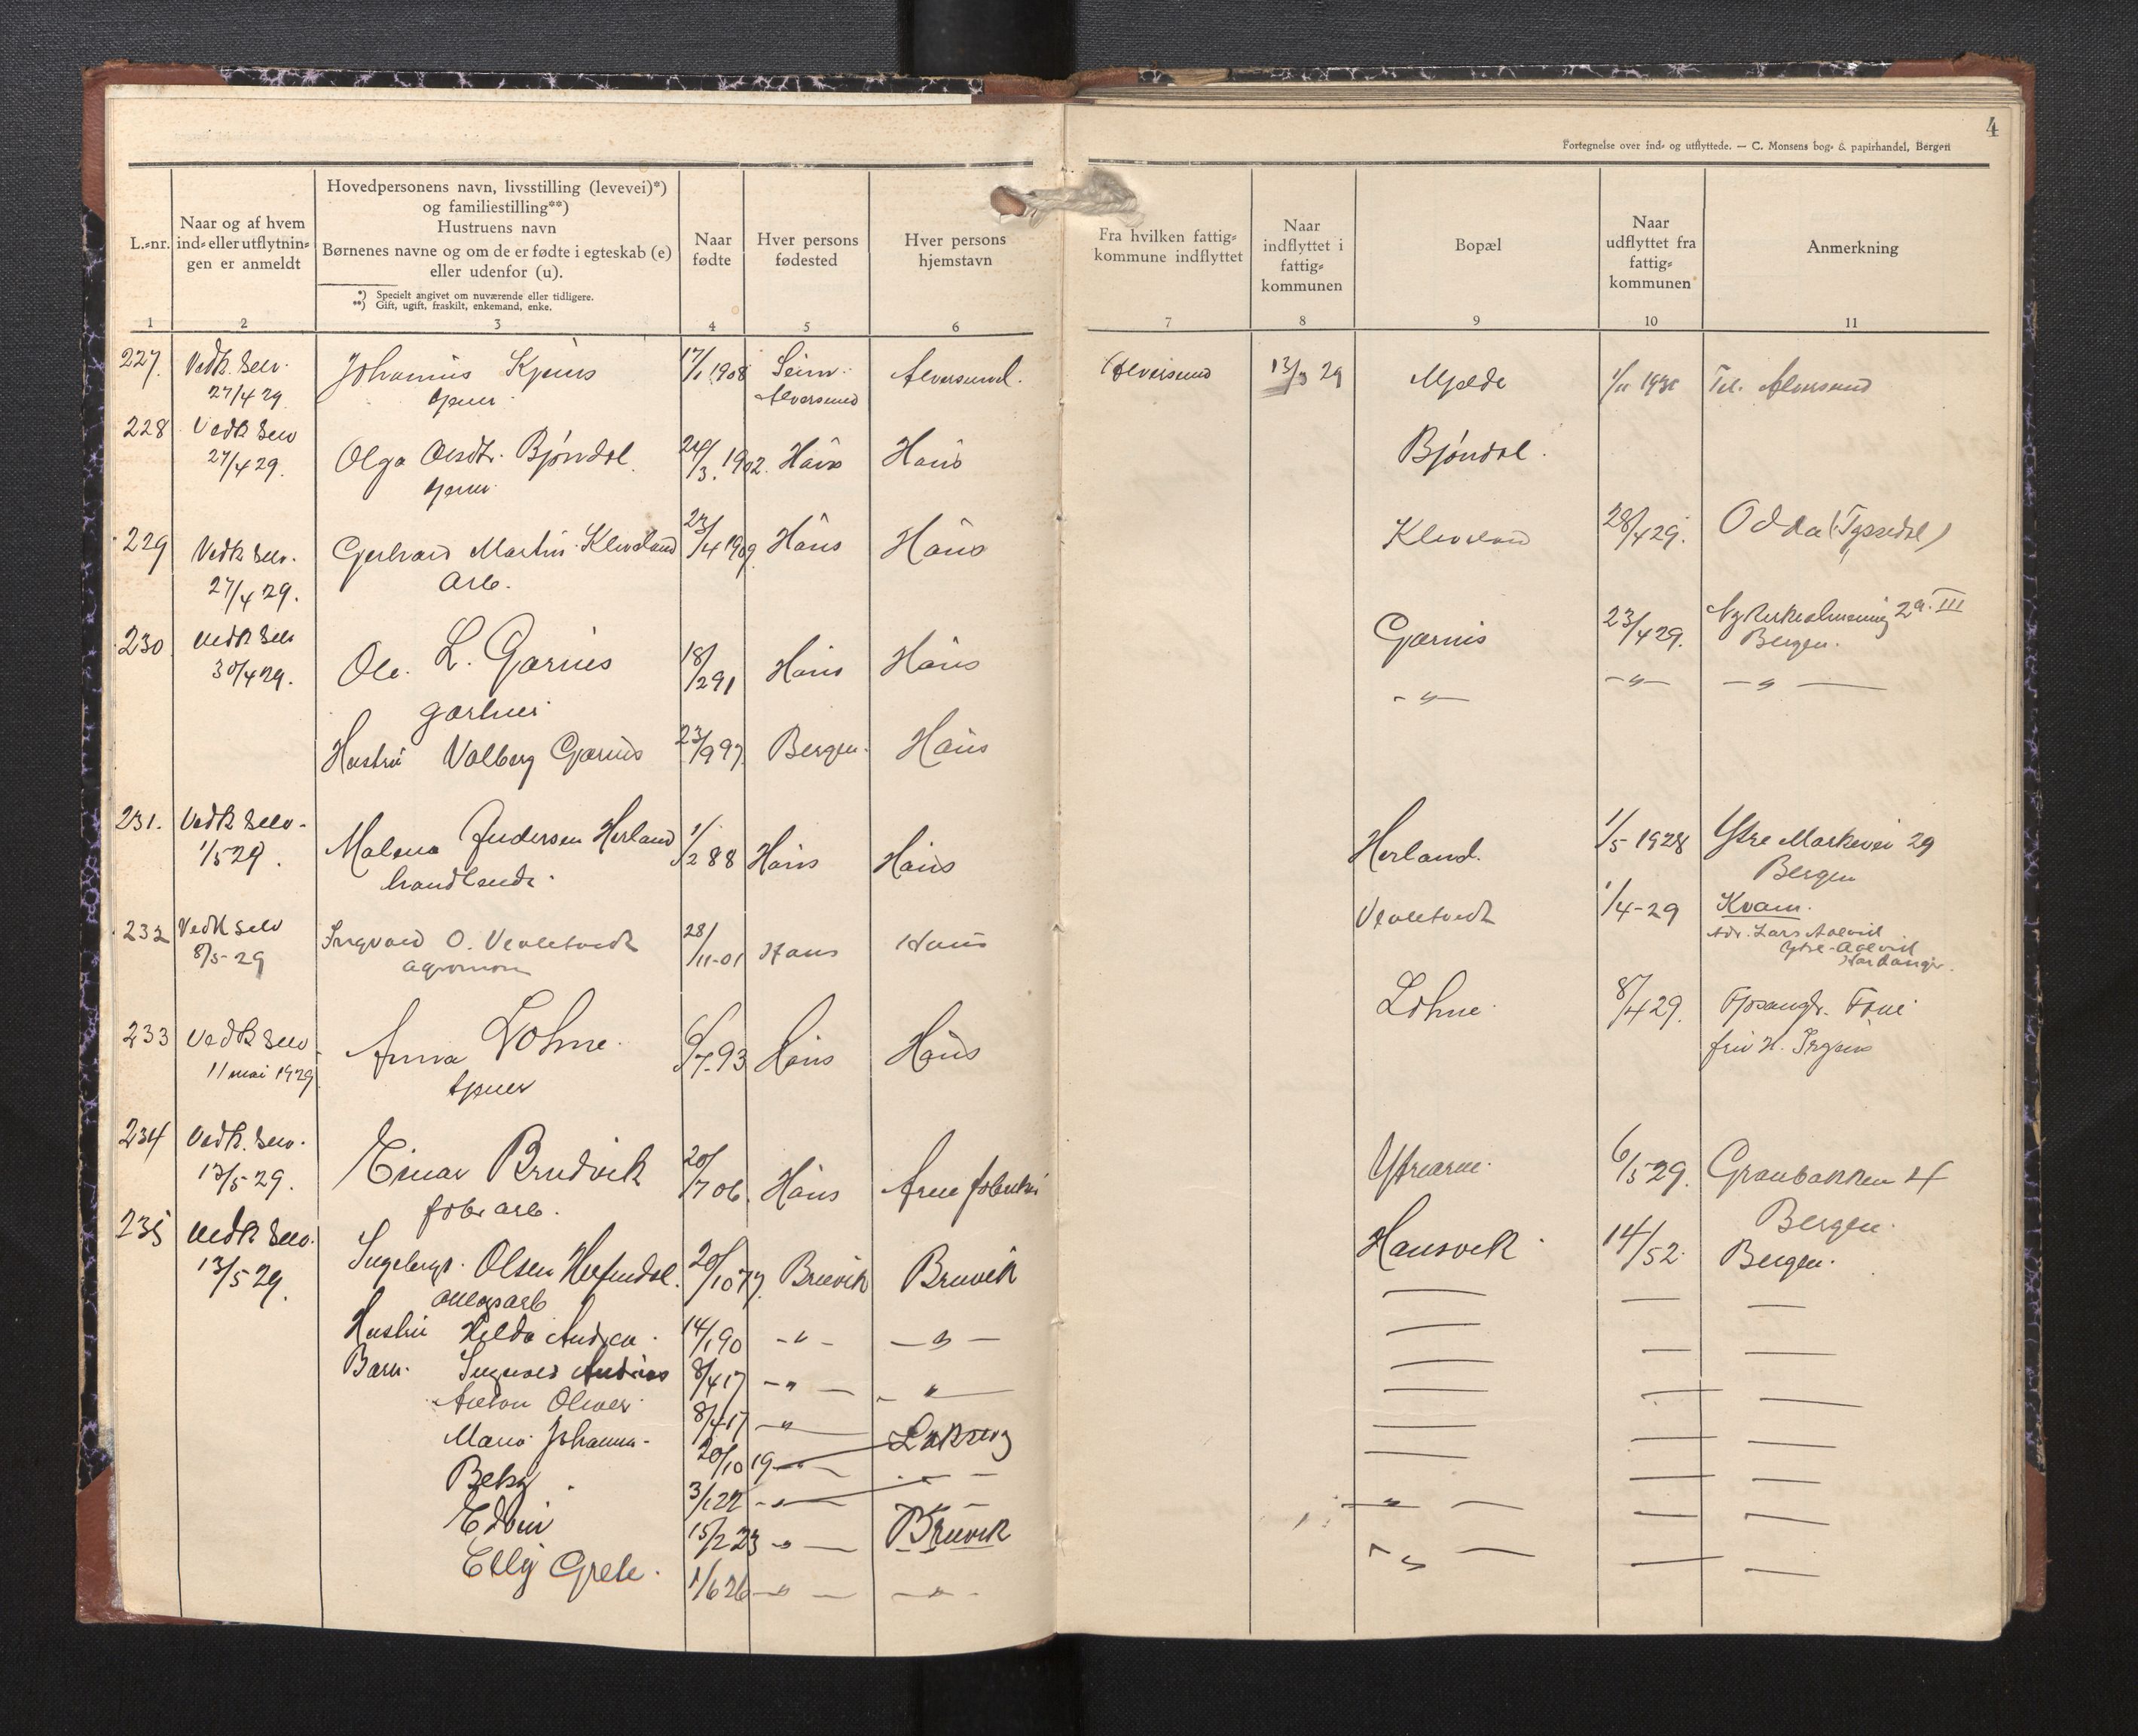 4
Fortegnelse over ind- og utflyttede. — C. Monsens bog- & papirhandel, Bergen
L.-nr.
Naar og af hvem
ind- eller utflytnin-
gen er anmeldt
Hovedpersonens navn, livsstilling (levevei)*)
og familiestilling**)
Hustruens navn
Børnenes navne og om de er fødte i egteskab (e)
eller udenfor (u).
*) Specielt angivet om nuværende eller tidligere.
**) Gift, ugift, fraskilt, enkemand, enke.
Naar
fødte
Hver persons
fødested
Hver persons
hjemstavn
Fra hvilken fattig-
kommune indflyttet
Naar
indflyttet i
fattig-
kommunen
Bopæl
Naar
udflyttet fra
fattig-
kommunen
Anmerkning
1 2 3 4 5 6 7 8 9 10 11
227. Vedk. selv. Johannes 17/1 1908 Seim. Alversund. Alversund 13/3 29 Mjelde Til. Alversund
27/4 29 tjener Alversund
228 Vedk selv
27/4 29. Olga Olsdtr. Bjøndal 24/3. 1902. Haus Haus Bjøndal.
tjener
229 Vedk selv. Gerhard Martin Kleveland 23/4 1909. Haus Haus Kleveland 28/4 29. Odda (Tyssedal)
27/4 29. arb.
230 Vedk selv Ole. L. Garnes 18/2 91 Haus Haus Garnes 23/4 29. 2a. III
30/4 29. Bergen.
gartner — " — — " — — " —
Hustru Valborg Garnes 23/9 97. Bergen. Haus
231. Vedk selv. Malena Andersen Herland 1/2 88 Haus Haus Herland. 1/5 1928 Ytre Markevei 29
1/5 29. handlende Bergen
232 Vedk selv Ingvald O. 28/11-01 Haus Haus 1/4-29 Kvam.
8/5-29 agronom adr. Lars Aalvik
Ytre-Aalvik
Hardanger.
233 Vedk selv Anna Lohne. 6/7-93 Haus Haus Lohne 8/4 29. Fjøsangr.
11 mai 1929 tjener
234 Vedk. selv. Einar Brudvik 20/7 06. Haus Arne fabrikker Ytrearne. 6/5 29. Granbakken 4
13/5-29. fabr arb. Bergen.
235 Vedk selv. Ingebrigt. Olsen 20/10 77. Bruvik Bruvik Hausvik 14/5 2. Bergen.
13/5 29. anlægsarb
Hustru Hilda Andrea. 14/1 90 — " — — " —
Barn. Ingvald Andreas 8/4 17 — " — — " —
Anton Oliver 8/4 17 — " —
Marie Johanna. 20/10 19 — " — Lakse
Betsy. 3/1 22 — " — — " —
Edvin 15/2 23 — " — Bruvik — " —
Elly Grete. 1/6 26 — " — — " — — " —